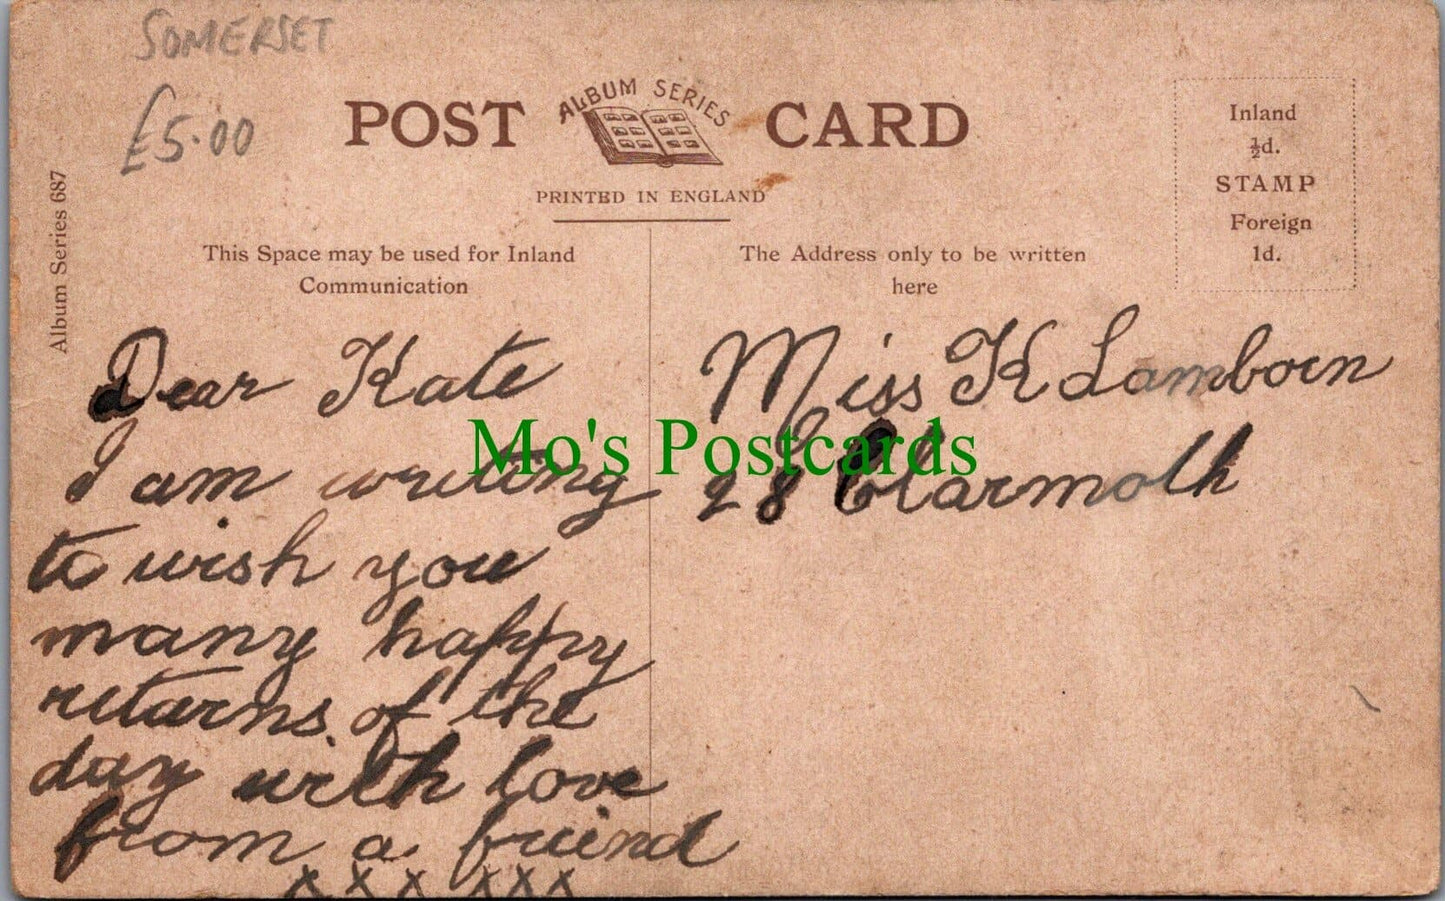 SOMERSET
£5.00
POST CARD
ALBUM SERIES
PRINTED IN ENGLAND
Inland
½d.
STAMP
Foreign
1d.
Album Series 687
This Space may be used for Inland
Communication
The Address only to be written
here
Dear Kate
I am writing
to wish you
many happy
returns of the
day with love
from a friend
x x x x x x
Miss K Lamborn
28 Clarmoth
Mo's Postcards